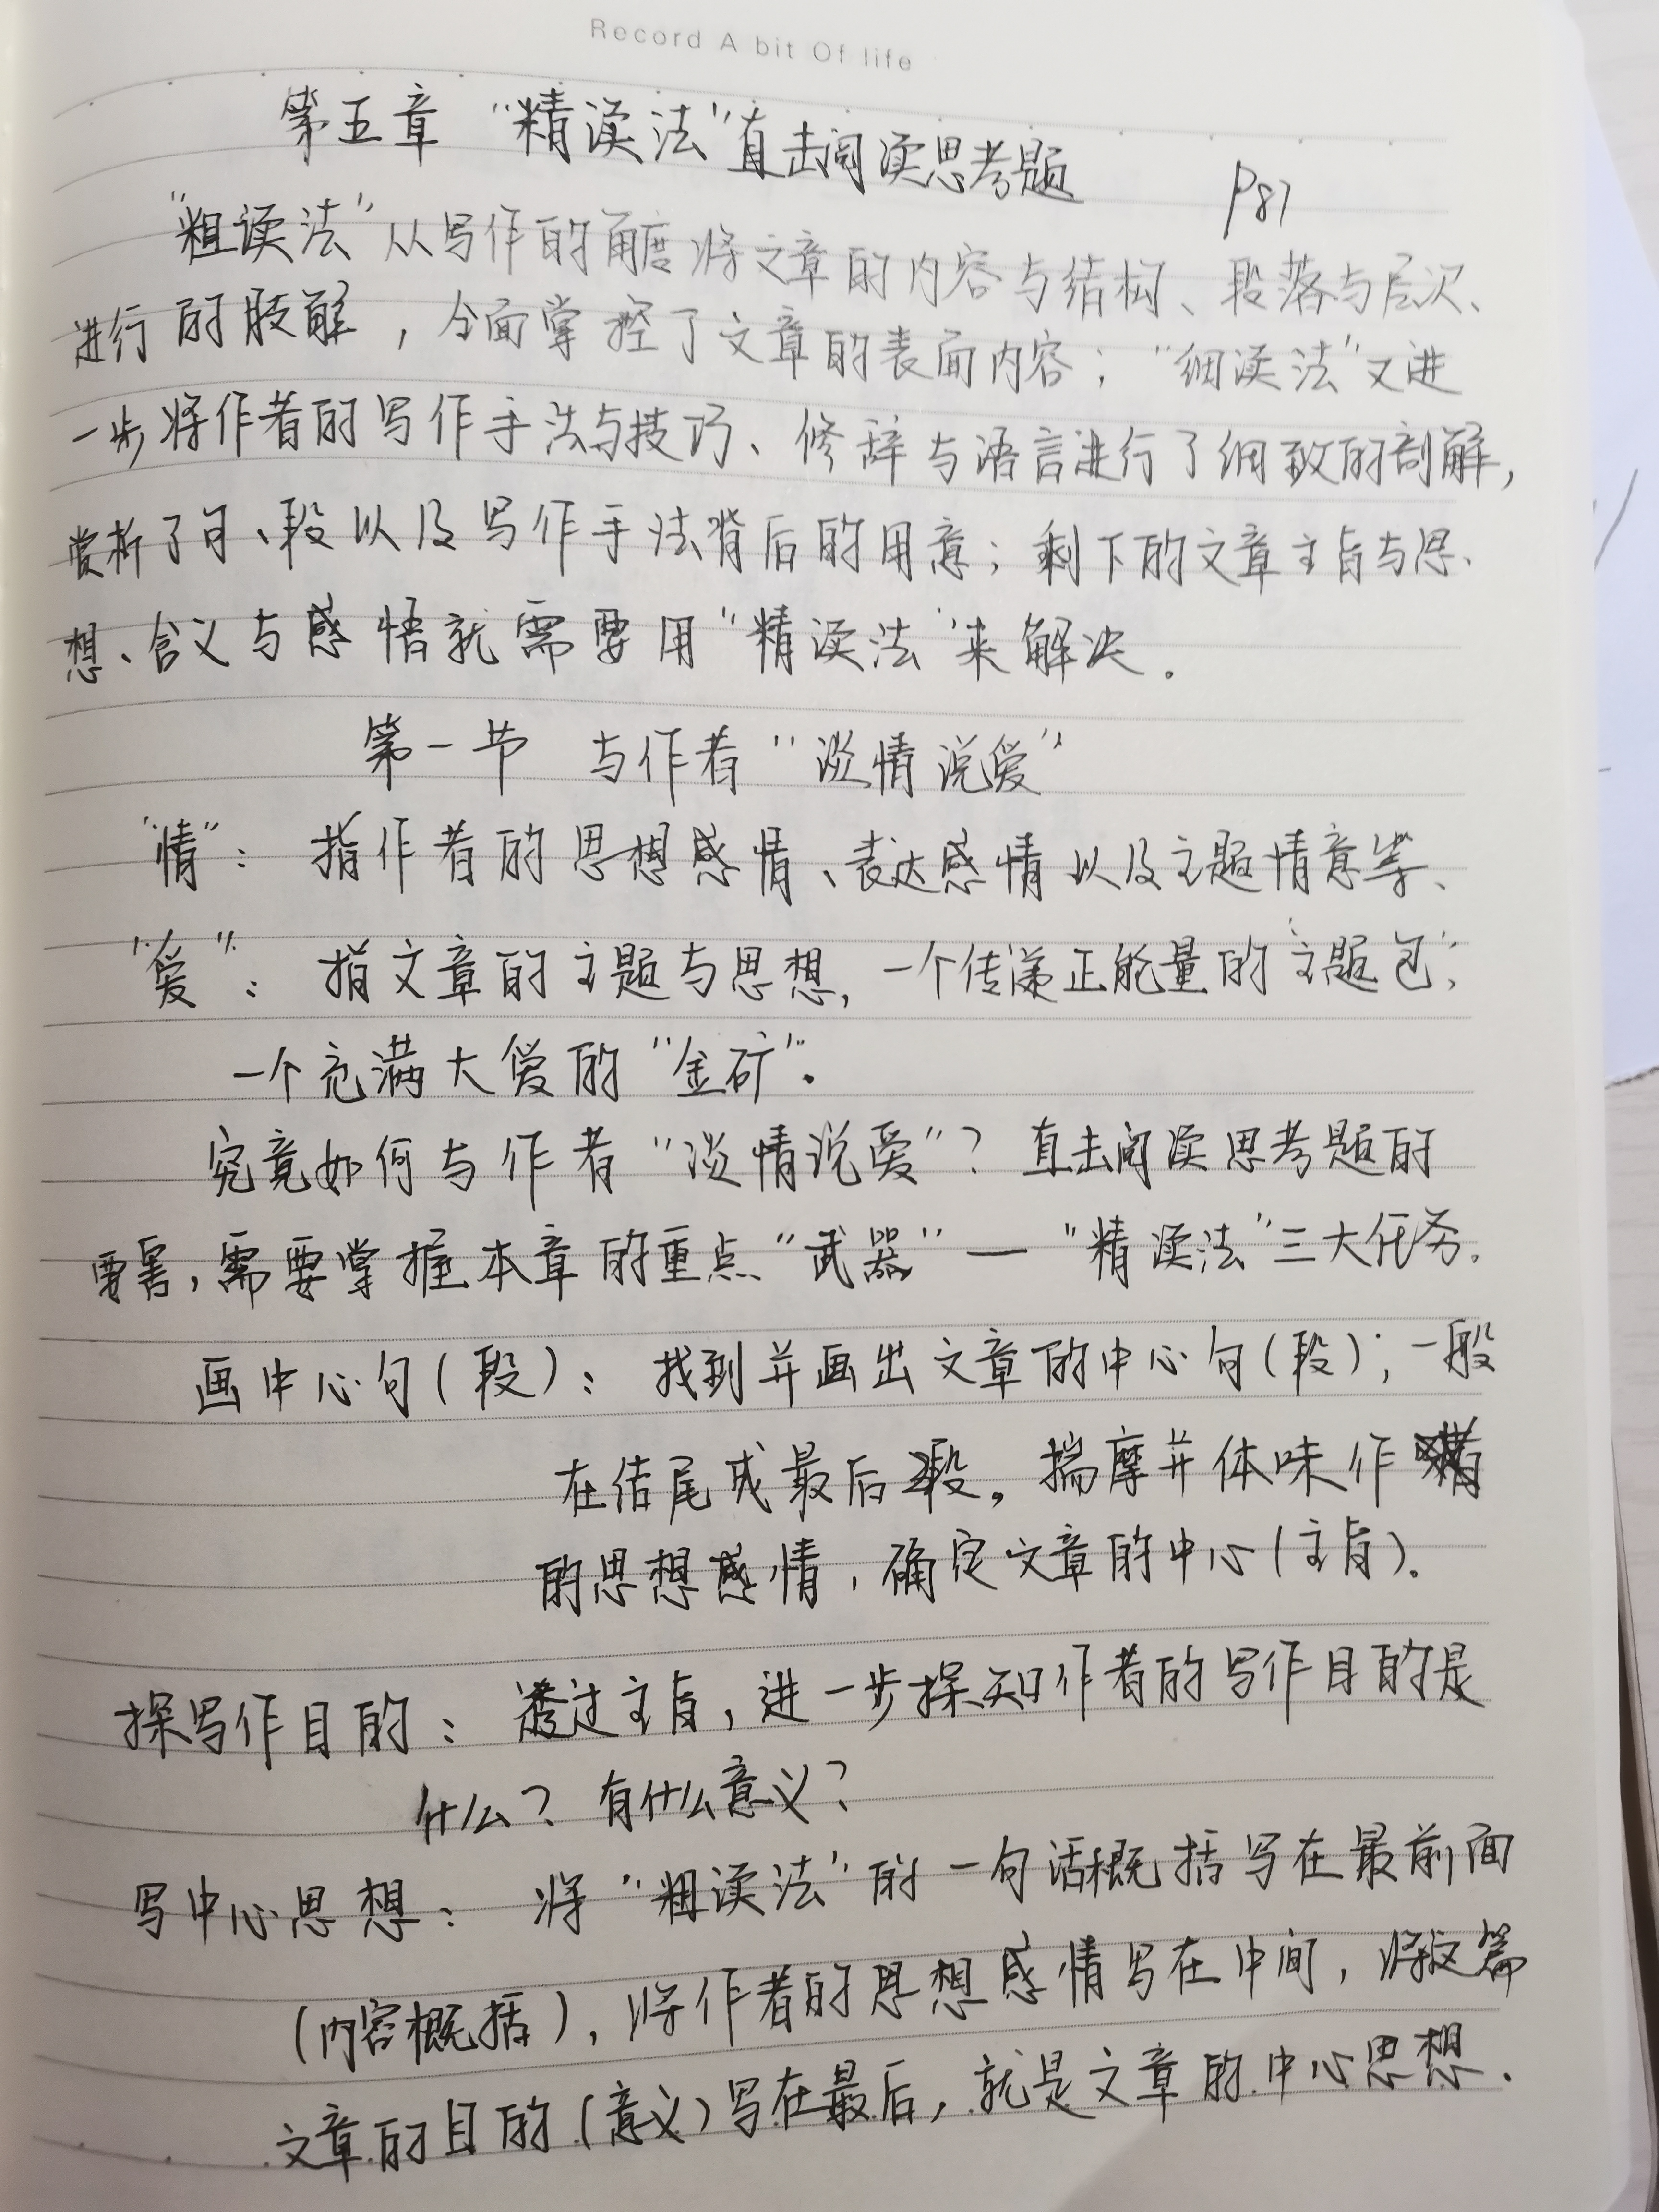 Record A bit Of life
第五章 “精读法”直击阅读思考题
P87
“粗读法”从写作的角度将文章的内容与结构、段落与层次、
进行的肢解，全面掌控了文章的表面内容；“细读法”又进
一步将作者的写作手法与技巧、修辞与语言进行了细致的剖解，
赏析了句、段以及写作手法背后的用意；剩下的文章主旨与思、
想、含义与感悟就需要用“精读法”来解决。
第一节 与作者“谈情说爱”
“情”：指作者的思想感情、表达感情以及主题情意等、
“爱”：指文章的主题与思想，一个传递正能量的“主题包”，
一个充满大爱的“金矿”。
究竟如何与作者“谈情说爱”？直击阅读思考题的
要害，需要掌握本章的重点“武器”—“精读法”三大任务.
画中心句(段)：找到并画出文章的中心句(段)；一般
在结尾或最后段。揣摩并体味作者
的思想感情，确定文章的中心(主旨).
探写作目的：透过主旨，进一步探知作者的写作目的是
什么？有什么意义？
写中心思想：将“粗读法”的一句话概括写在最前面
(内容概括)，将作者的思想感情写在中间，将这篇
文章的目的(意义)写在最后，就是文章的中心思想.